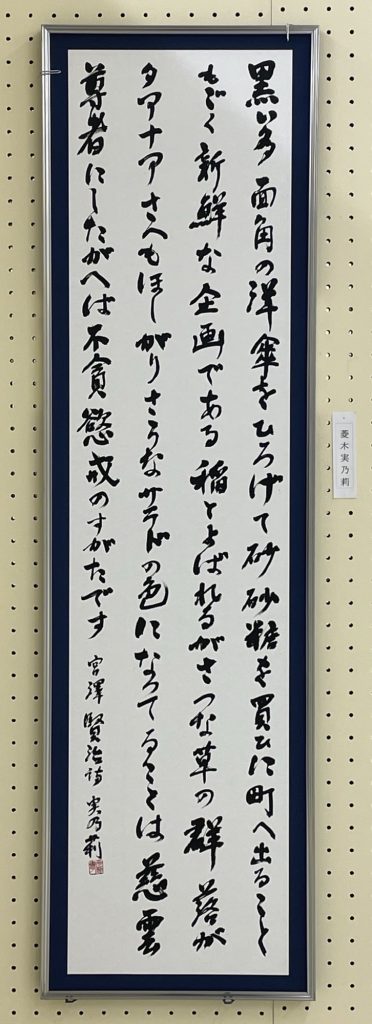 黒い多面角の洋傘をひろげて砂砂糖を買ひに町へ出ること
もごく新鮮な企画である稲とよばれるがさつな草の群落が
タアナアさへもほしがりさうなサラドの色になつてることは慈雲
尊者にしたがへは不貪慾戒のすがたです 宮澤賢治詩 実乃莉
菱木実乃莉